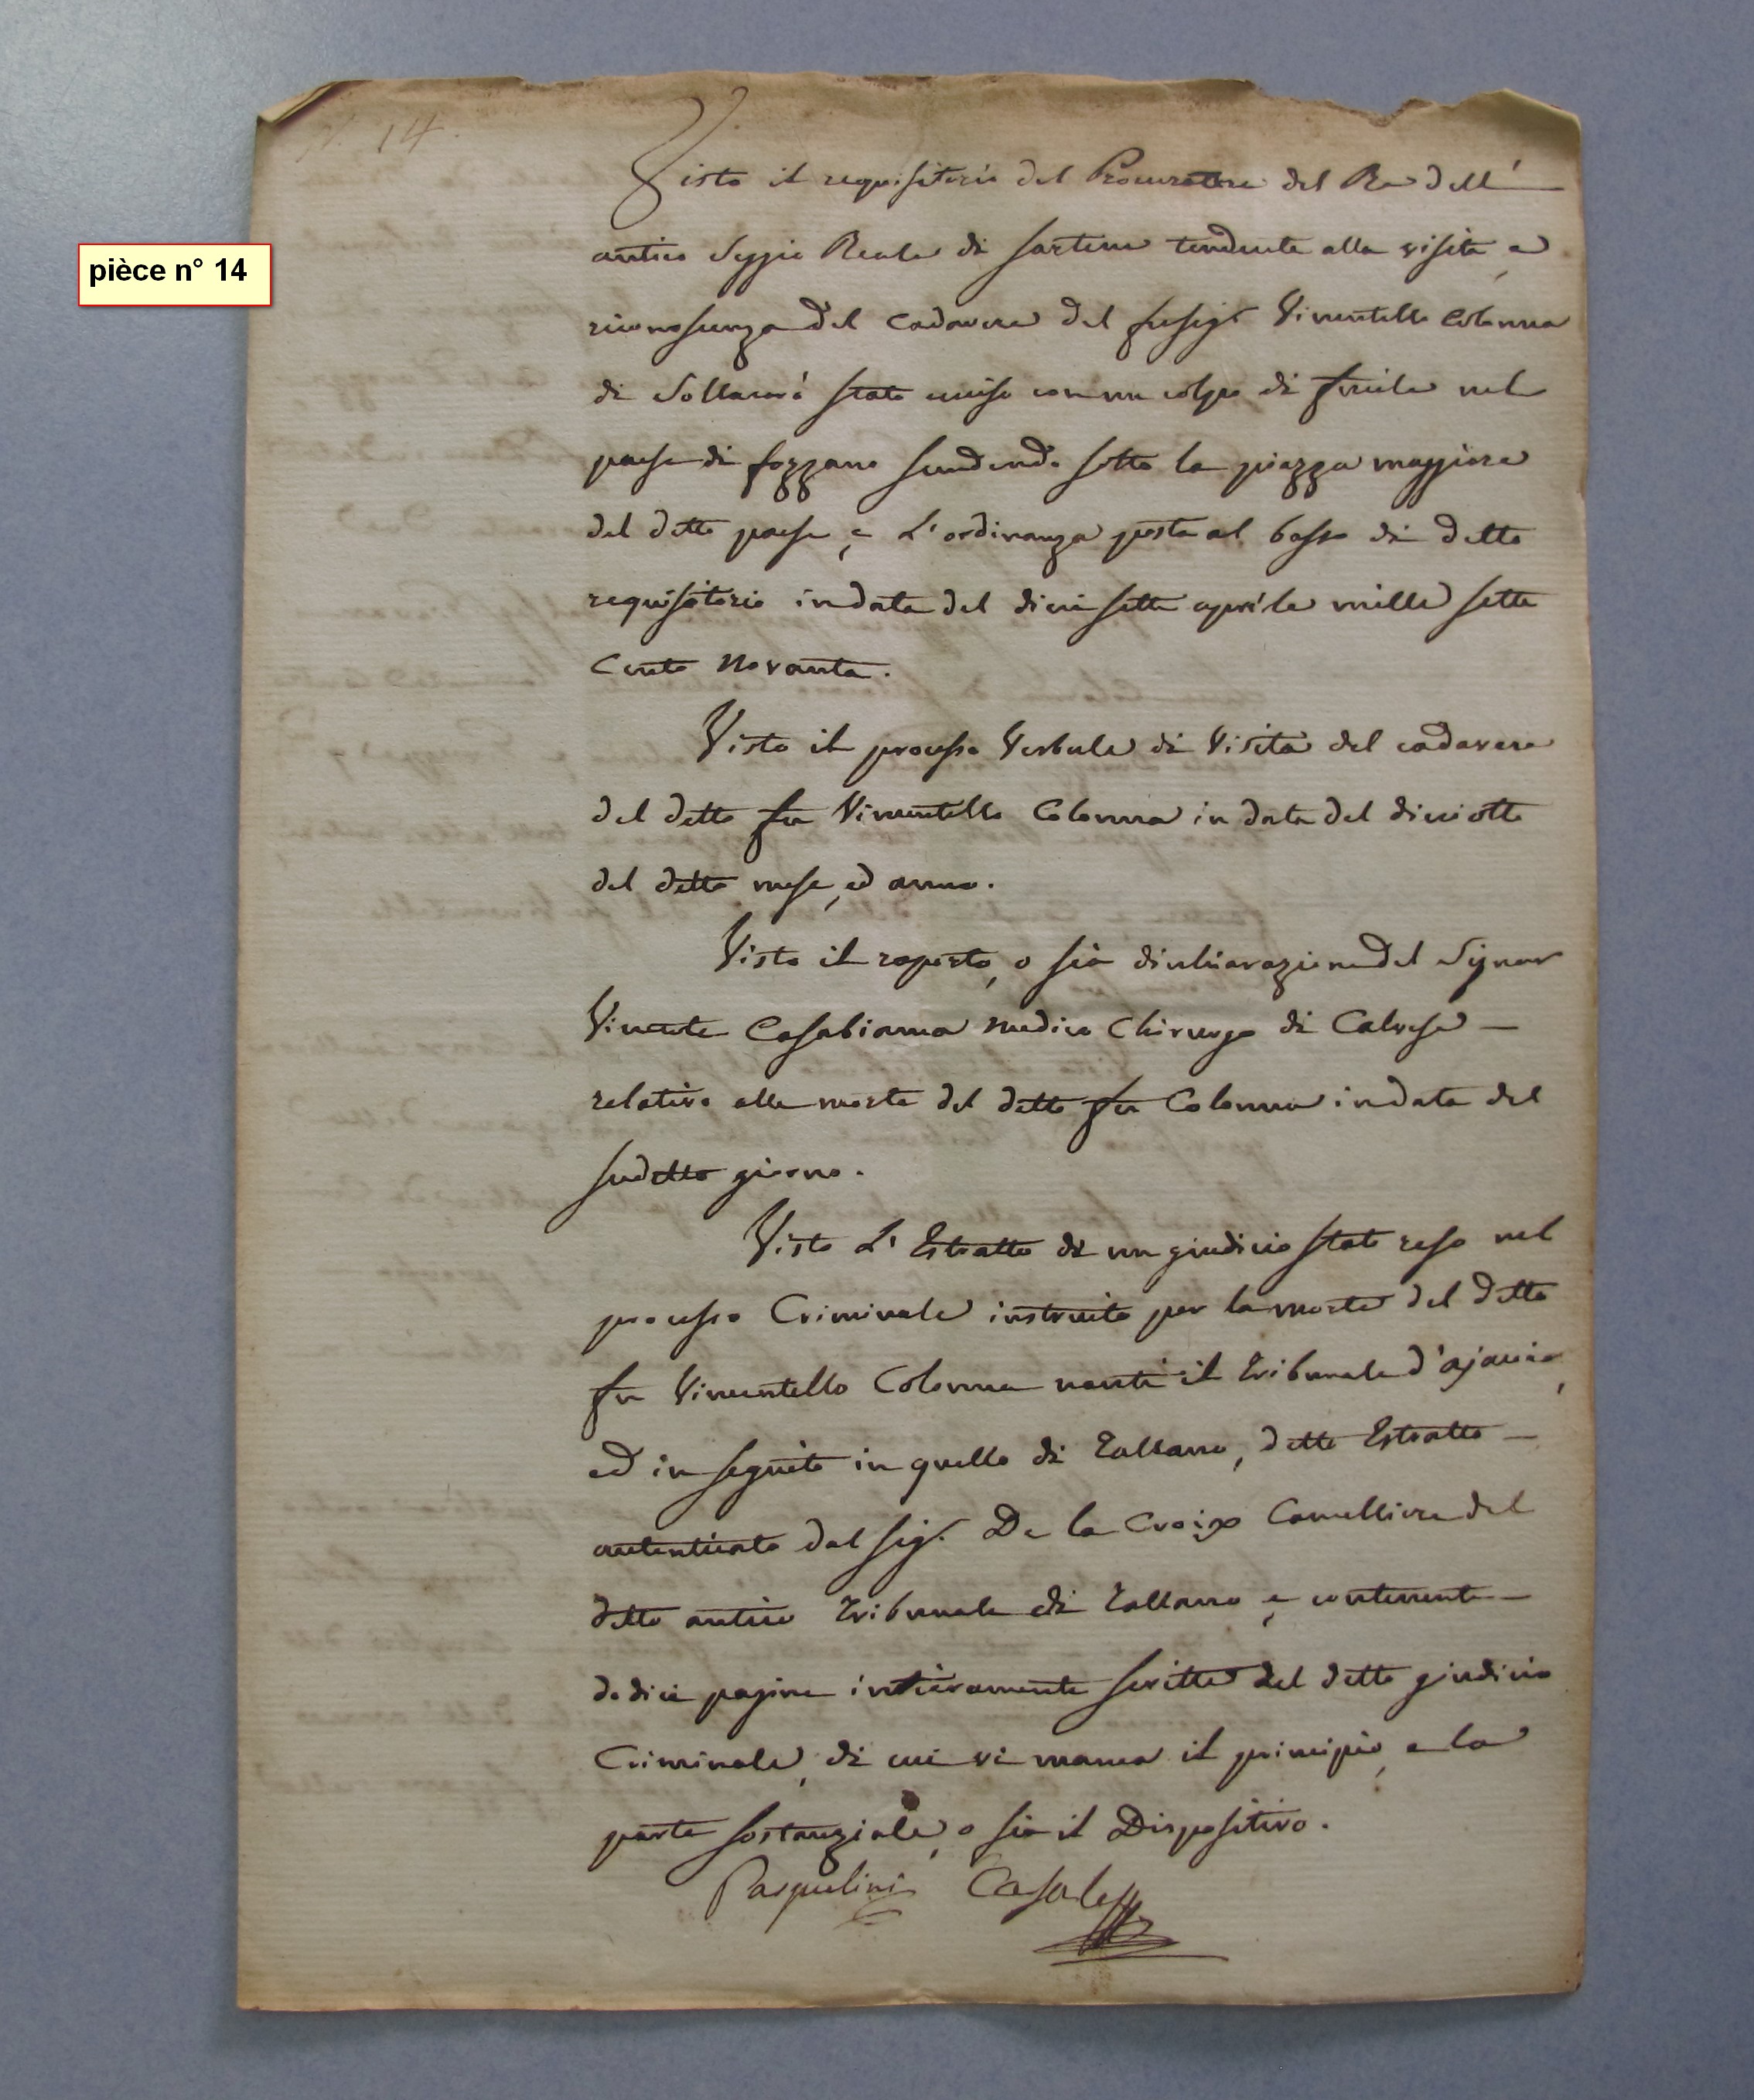 N. 14.
pièce n° 14
Visto il requisitorio del Procuratore del Re dell'
antico Seggio Reale di Sartene tendente alla visita, e
riconoscenza del cadavere del fu sig.r Vincentello Colonna
di Sollacarò stato ucciso con un colpo di fucile nel
paese di fozzano scendendo sotto la piazza maggiore
del detto paese, e L'ordinanza posta al basso di detto
requisitorio in data del diecisette aprile mille sette
Cento Novanta.
Visto il processo Verbale di Visita del cadavere
del detto fu Vincentello Colonna in data del dieciotto
del detto mese, ed anno.
Visto il raporto, o sia dichiarazione del Signor
Vincente Casabianca medico Chirurgo di Calvese —
relativo alla morte del detto fu Colonna in data del
sudetto giorno.
Visto L'Estratto di un giudicio stato reso nel
processo Criminale instruito per la morte del detto
fu Vincentello Colonna nanti il Tribunale d'ajaccio,
ed in seguito in quello di Tallano, detto Estratto —
autenticato dal sig.r De la Croix Cancelliere del
detto antico Tribunale di Tallano, e contenente —
dodici pagine intieramente scritte del detto giudicio
Criminale, di cui vi manca il principio, e la
parte sostanziale, o sia il Dispositivo.
Pasqualini Casale